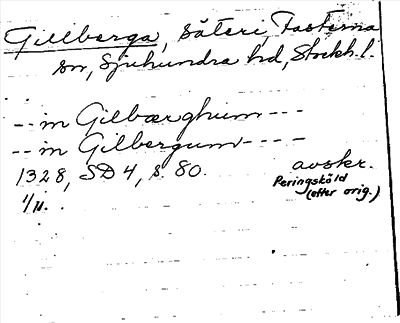 Gillberga, säteri, Fasterna
sn, Sjuhundra hd, Stockh. l.
-- in Gilbærghum ---
-- in Gilbergum ----
1328, SD 4, s. 80. avskr.
1/11. Peringsköld
(efter orig.)